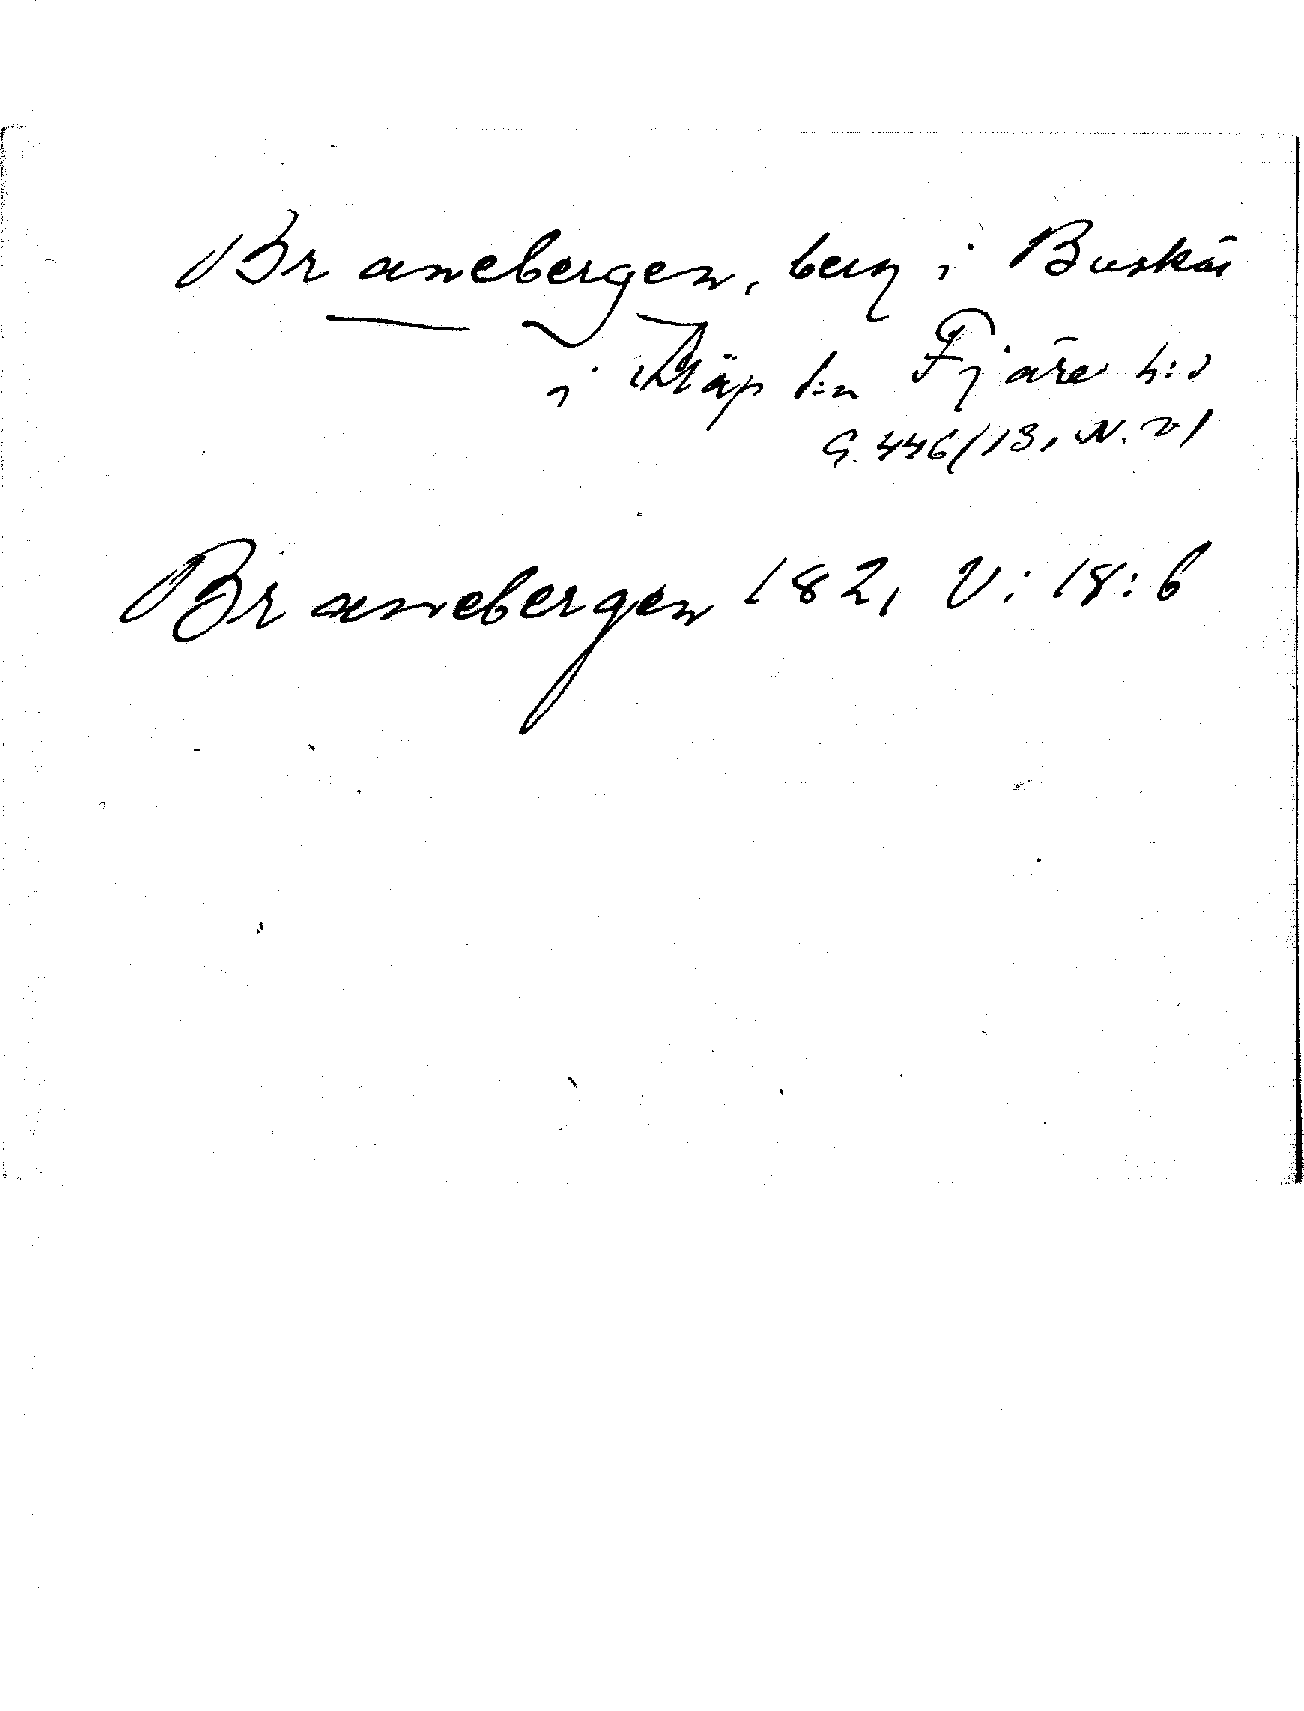 Branebergen, berg i Buskär
i Släp s:n Fjäre h:d
G. 446/13, N. 21
Branebergen 182, V: 18:6